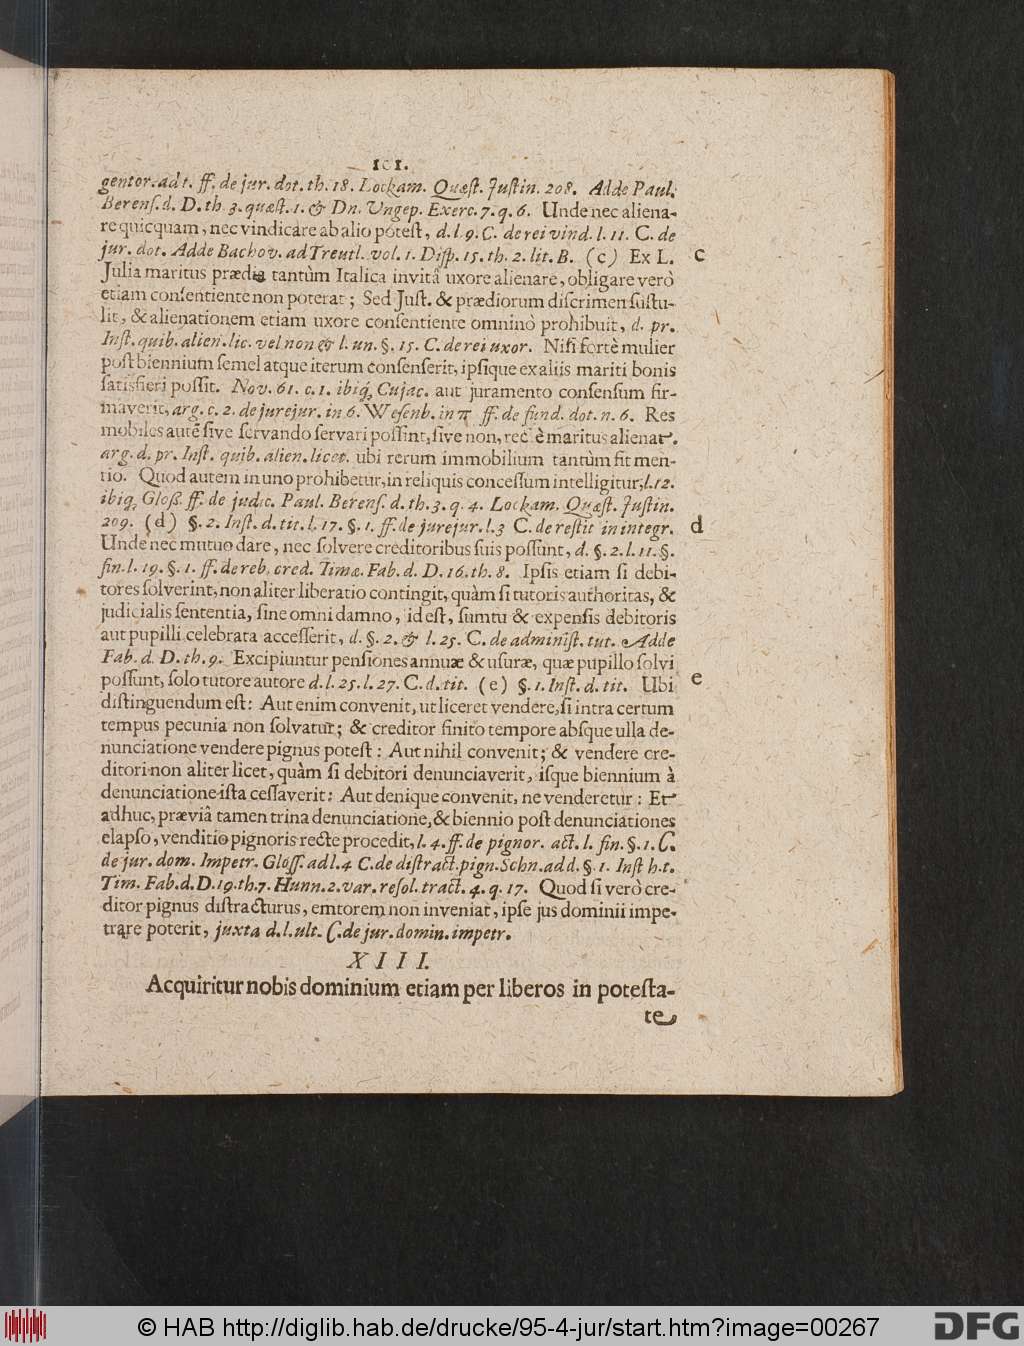 101.
gentor. ad t. ff. de jur. dot. th. 18. Lockam. Quæſt. Juſtin. 208. Adde Paul.
Berenſ. d. D. th. 3. quæſt. 1. & Dn. Ungep. Exerc. 7. q. 6. Unde nec aliena-
re quicquam, nec vindicare ab alio poteſt, d. l. 9. C. de rei vind. l. 11. C. de
jur. dot. Adde Bachov. ad Treutl. vol. 1. Diſp. 15. th. 2. lit. B. (c) Ex L. c
Julia maritus prædia tantùm Italica invitâ uxore alienare, obligare verò
etiam conſentiente non poterat; Sed Juſt. & prædiorum diſcrimen ſuſtu-
lit, & alienationem etiam uxore conſentiente omninò prohibuit, d. pr.
Inſt. quib. alien. lic. vel non & l. un. §. 15. C. de rei uxor. Niſi fortè mulier
poſt biennium ſemel atque iterum conſenſerit, ipſique ex aliis mariti bonis
ſatisfieri poſſit. Nov. 61. c. 1. ibiq; Cujac. aut juramento conſenſum fir-
maverit, arg. c. 2. de jurejur. in 6. Weſenb. in π ff. de fund. dot. n. 6. Res
mobiles autē ſive ſervando ſervari poſſint, ſive non, rectè maritus alienat.
arg. d. pr. Inſt. quib. alien. licet. ubi rerum immobilium tantùm fit men-
tio. Quod autem in uno prohibetur, in reliquis conceſſum intelligitur, l. 12.
ibiq; Gloß. ff. de judic. Paul. Berenſ. d. th. 3. q. 4. Lockam. Quæſt. Juſtin.
209. (d) §. 2. Inſt. d. tit. l. 17. §. 1. ff. de jurejur. l. 3 C. de reſtit in integr. d
Unde nec mutuo dare, nec ſolvere creditoribus ſuis poſſunt, d. §. 2. l. 11. §.
fin. l. 19. §. 1. ff. de reb. cred. Timæ. Fab. d. D. 16. th. 8. Ipſis etiam ſi debi-
tores ſolverint, non aliter liberatio contingit, quàm ſi tutoris authoritas, &
judicialis ſententia, ſine omni damno, id eſt, ſumtu & expenſis debitoris
aut pupilli celebrata acceſſerit, d. §. 2. & l. 25. C. de adminiſt. tut. Adde
Fab. d. D. th. 9. Excipiuntur penſiones annuæ & uſuræ, quæ pupillo ſolvi
poſſunt, ſolo tutore autore d. l. 25. l. 27. C. d. tit. (e) §. 1. Inſt. d. tit. Ubi e
diſtinguendum eſt: Aut enim convenit, ut liceret vendere, ſi intra certum
tempus pecunia non ſolvatur; & creditor finito tempore absque ulla de-
nunciatione vendere pignus poteſt: Aut nihil convenit; & vendere cre-
ditori non aliter licet, quàm ſi debitori denunciaverit, iſque biennium à
denunciatione iſta ceſſaverit: Aut denique convenit, ne venderetur: Et
adhuc, præviâ tamen trina denunciatione, & biennio poſt denunciationes
elapſo, venditio pignoris recte procedit, l. 4. ff. de pignor. act. l. fin. §. 1. C.
de jur. dom. Impetr. Gloſſ. ad l. 4 C. de diſtract. pign. Schn. ad d. §. 1. Inſt h. t.
Tim. Fab. d. D. 19. th. 7. Hunn. 2. var. reſol. tract. 4. q. 17. Quod ſi verò cre-
ditor pignus diſtracturus, emtorem non inveniat, ipſe jus dominii impe-
trare poterit, juxta d. l. ult. C. de jur. domin. impetr.
XIII.
Acquiritur nobis dominium etiam per liberos in poteſta-
te
© HAB http://diglib.hab.de/drucke/95-4-jur/start.htm?image=00267
DFG